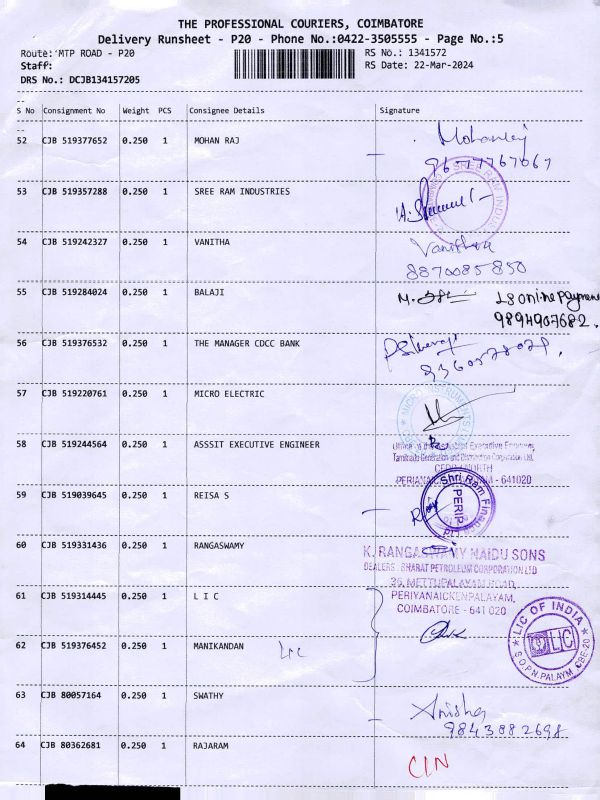 THE PROFESSIONAL COURIERS, COIMBATORE
Delivery Runsheet - P20 - Phone No.:0422-3505555 - Page No.:5
Route: MTP ROAD - P20 RS No.: 1341572
Staff: RS Date: 22-Mar-2024
DRS No.: DCJB134157205
S No Consignment No Weight PCS Consignee Details Signature
52 CJB 519377652 0.250 1 MOHAN RAJ Mohanraj
9677767067
53 CJB 519357288 0.250 1 SREE RAM INDUSTRIES SREE RAM
54 CJB 519242327 0.250 1 VANITHA Vanitha
8870085850
55 CJB 519284024 0.250 1 BALAJI
9894907682.
56 CJB 519376532 0.250 1 THE MANAGER CDCC BANK
57 CJB 519220761 0.250 1 MICRO ELECTRIC MICRO INSTRUMENTS
58 CJB 519244564 0.250 1 ASSSIT EXECUTIVE ENGINEER Executive Engineer,
Tamilnadu Generation and Distribution Corporation Ltd,
NORTH
PERIYANAICKENPALAYAM - 641020
59 CJB 519039645 0.250 1 REISA S Shri Ram Finance Ltd
PERIP
60 CJB 519331436 0.250 1 RANGASWAMY K. RANGASWAMY NAIDU SONS
DEALERS : BHARAT PETROLEUM CORPORATION LTD
METTUPALAYAM ROAD,
61 CJB 519314445 0.250 1 L I C PERIYANAICKENPALAYAM,
COIMBATORE - 641 020
62 CJB 519376452 0.250 1 MANIKANDAN LIC
LIC OF INDIA
LIC
S.O.P.N.PALAYM, CBE-20
63 CJB 80057164 0.250 1 SWATHY Anisha
9843882698
64 CJB 80362681 0.250 1 RAJARAM CIN